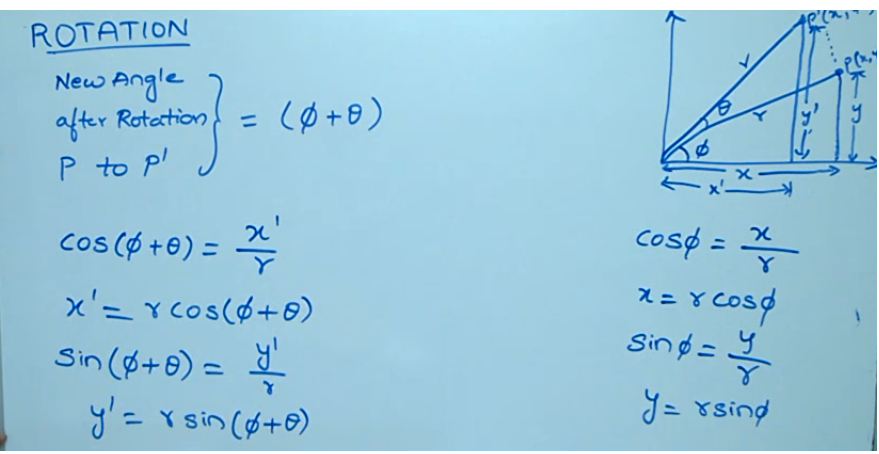 ROTATION
New Angle
after Rotation
P to P'
} = (ϕ+θ)
cos(ϕ+θ) = x'/r
x' = r cos(ϕ+θ)
Sin(ϕ+θ) = y'/r
y' = r sin(ϕ+θ)
r
θ
r
ϕ
y'
y
x
x'
cosϕ = x/r
x = r cosϕ
Sinϕ = y/r
y = r sinϕ